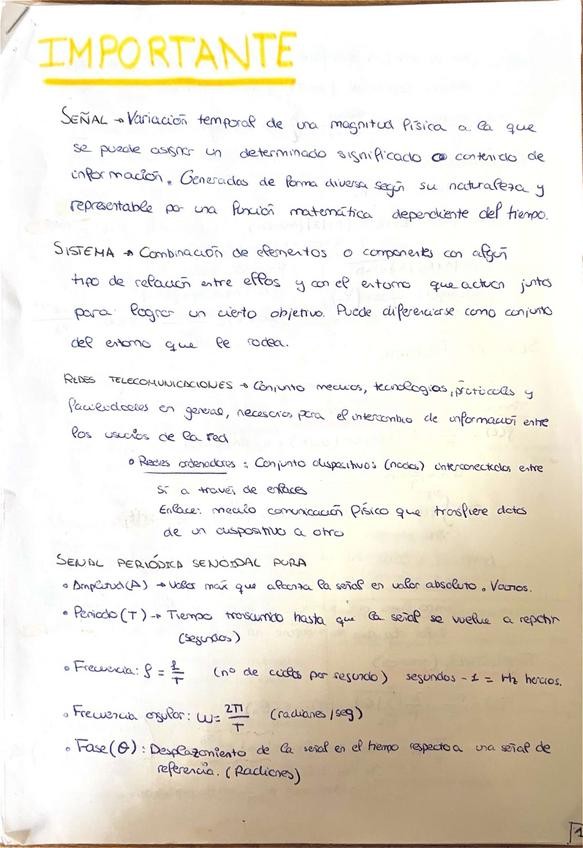 IMPORTANTE
SEÑAL → Variación temporal de una magnitud física a la que
se puede asignar un determinado significado o contenido de
información. Generadas de forma diversa según su naturaleza y
representable por una función matemática dependiente del tiempo.
SISTEMA → Combinación de elementos o componentes con algún
tipo de relación entre ellos y con el entorno que actúan juntos
para lograr un cierto objetivo. Puede diferenciarse como conjunto
del entorno que le rodea.
REDES TELECOMUNICACIONES → Conjunto medios, tecnologías, protocolos y
facilidades en general, necesarios para el intercambio de información entre
los usuarios de la red
• Redes ordenadores: Conjunto dispositivos (nodos) interconectados entre
sí a través de enlaces
Enlace: medio comunicación físico que transfiere datos
de un dispositivo a otro
SEÑAL PERIÓDICA SENOIDAL PURA
• Amplitud (A) → Valor max que alcanza la señal en valor absoluto.
• Periodo (T) → Tiempo transcurrido hasta que la señal se vuelve a repetir
(segundos)
• Frecuencia: f = 1/T (nº de ciclos por segundo) segundos -1 = Hz hercios.
• Frecuencia angular: ω = 2π/T (radianes/seg)
• Fase (θ): Desplazamiento de la señal en el tiempo respecto a una señal de
referencia. (Radianes)
1